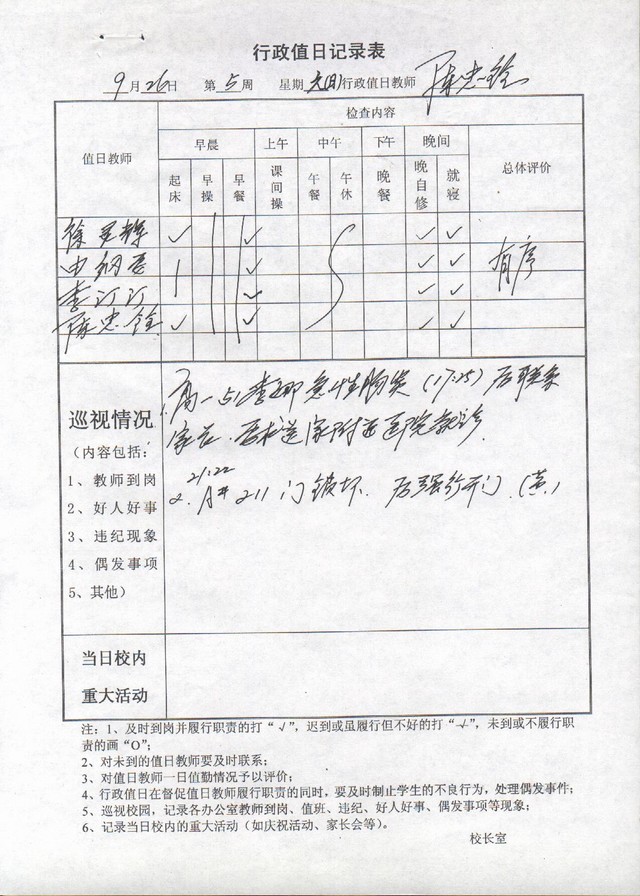 行政值日记录表
9月26日 第5周 星期六(日)行政值日教师 陈忠铨
检查内容
值日教师 早晨 上午 中午 下午 晚间 总体评价
起床 早操 早餐 课间操 午餐 午休 晚餐 晚自修 就寝
徐 辉 ✓ ✓ ✓ ✓
✓ ✓ ✓ 有序
李汀汀 ✓ ✓ ✓
陈忠铨 ✓ ✓ ✓ ✓
巡视情况
(内容包括:
1、教师到岗
2、好人好事
3、违纪现象
4、偶发事项
5、其他)
1.高一5 李娜急性 (17:25) 后联系
家长.要求送家附近医院就诊.
21:22
2. 211门锁坏.后强行开门.(黄)
当日校内
重大活动
注:1、及时到岗并履行职责的打“√”,迟到或虽履行但不好的打“√”,未到或不履行职
责的画“O”;
2、对未到的值日教师要及时联系;
3、对值日教师一日值勤情况予以评价;
4、行政值日在督促值日教师履行职责的同时,要及时制止学生的不良行为,处理偶发事件;
5、巡视校园,记录各办公室教师到岗、值班、违纪、好人好事、偶发事项等现象;
6、记录当日校内的重大活动(如庆祝活动、家长会等)。
校长室